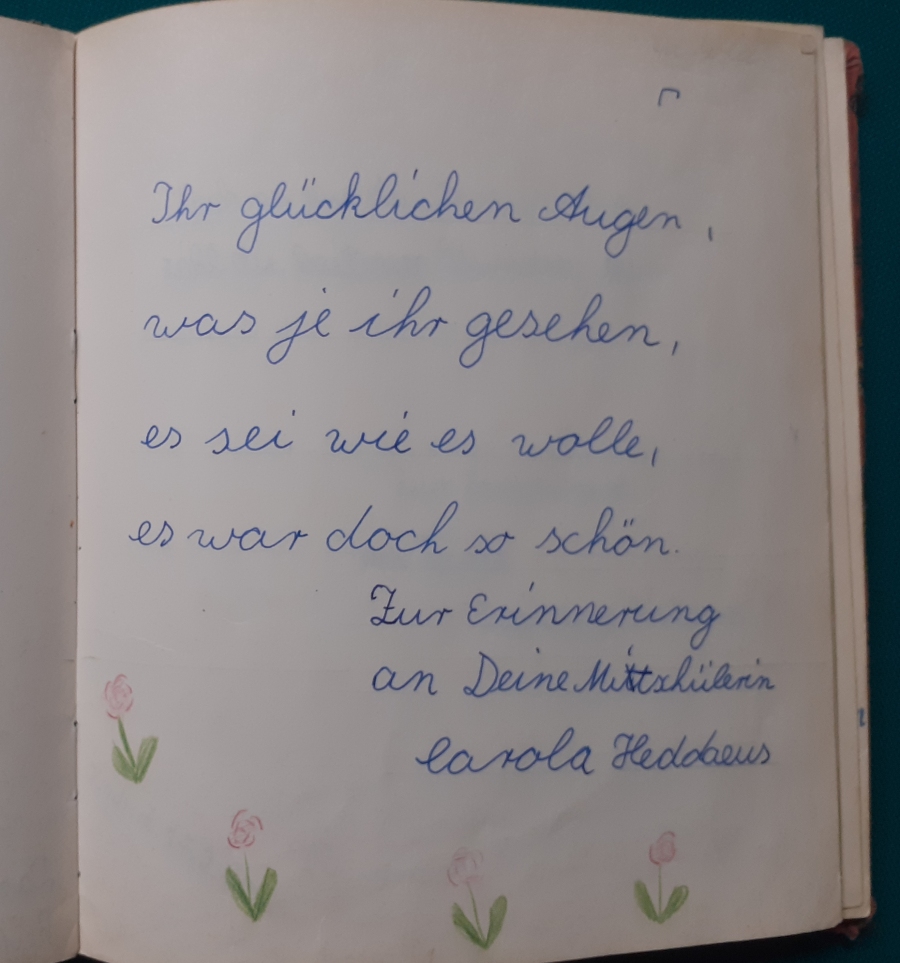 Ihr glücklichen Augen,
was je ihr gesehen,
es sei wie es wolle,
es war doch so schön.
Zur Erinnerung
an Deine Mittschülerin
Carola Heddaeus